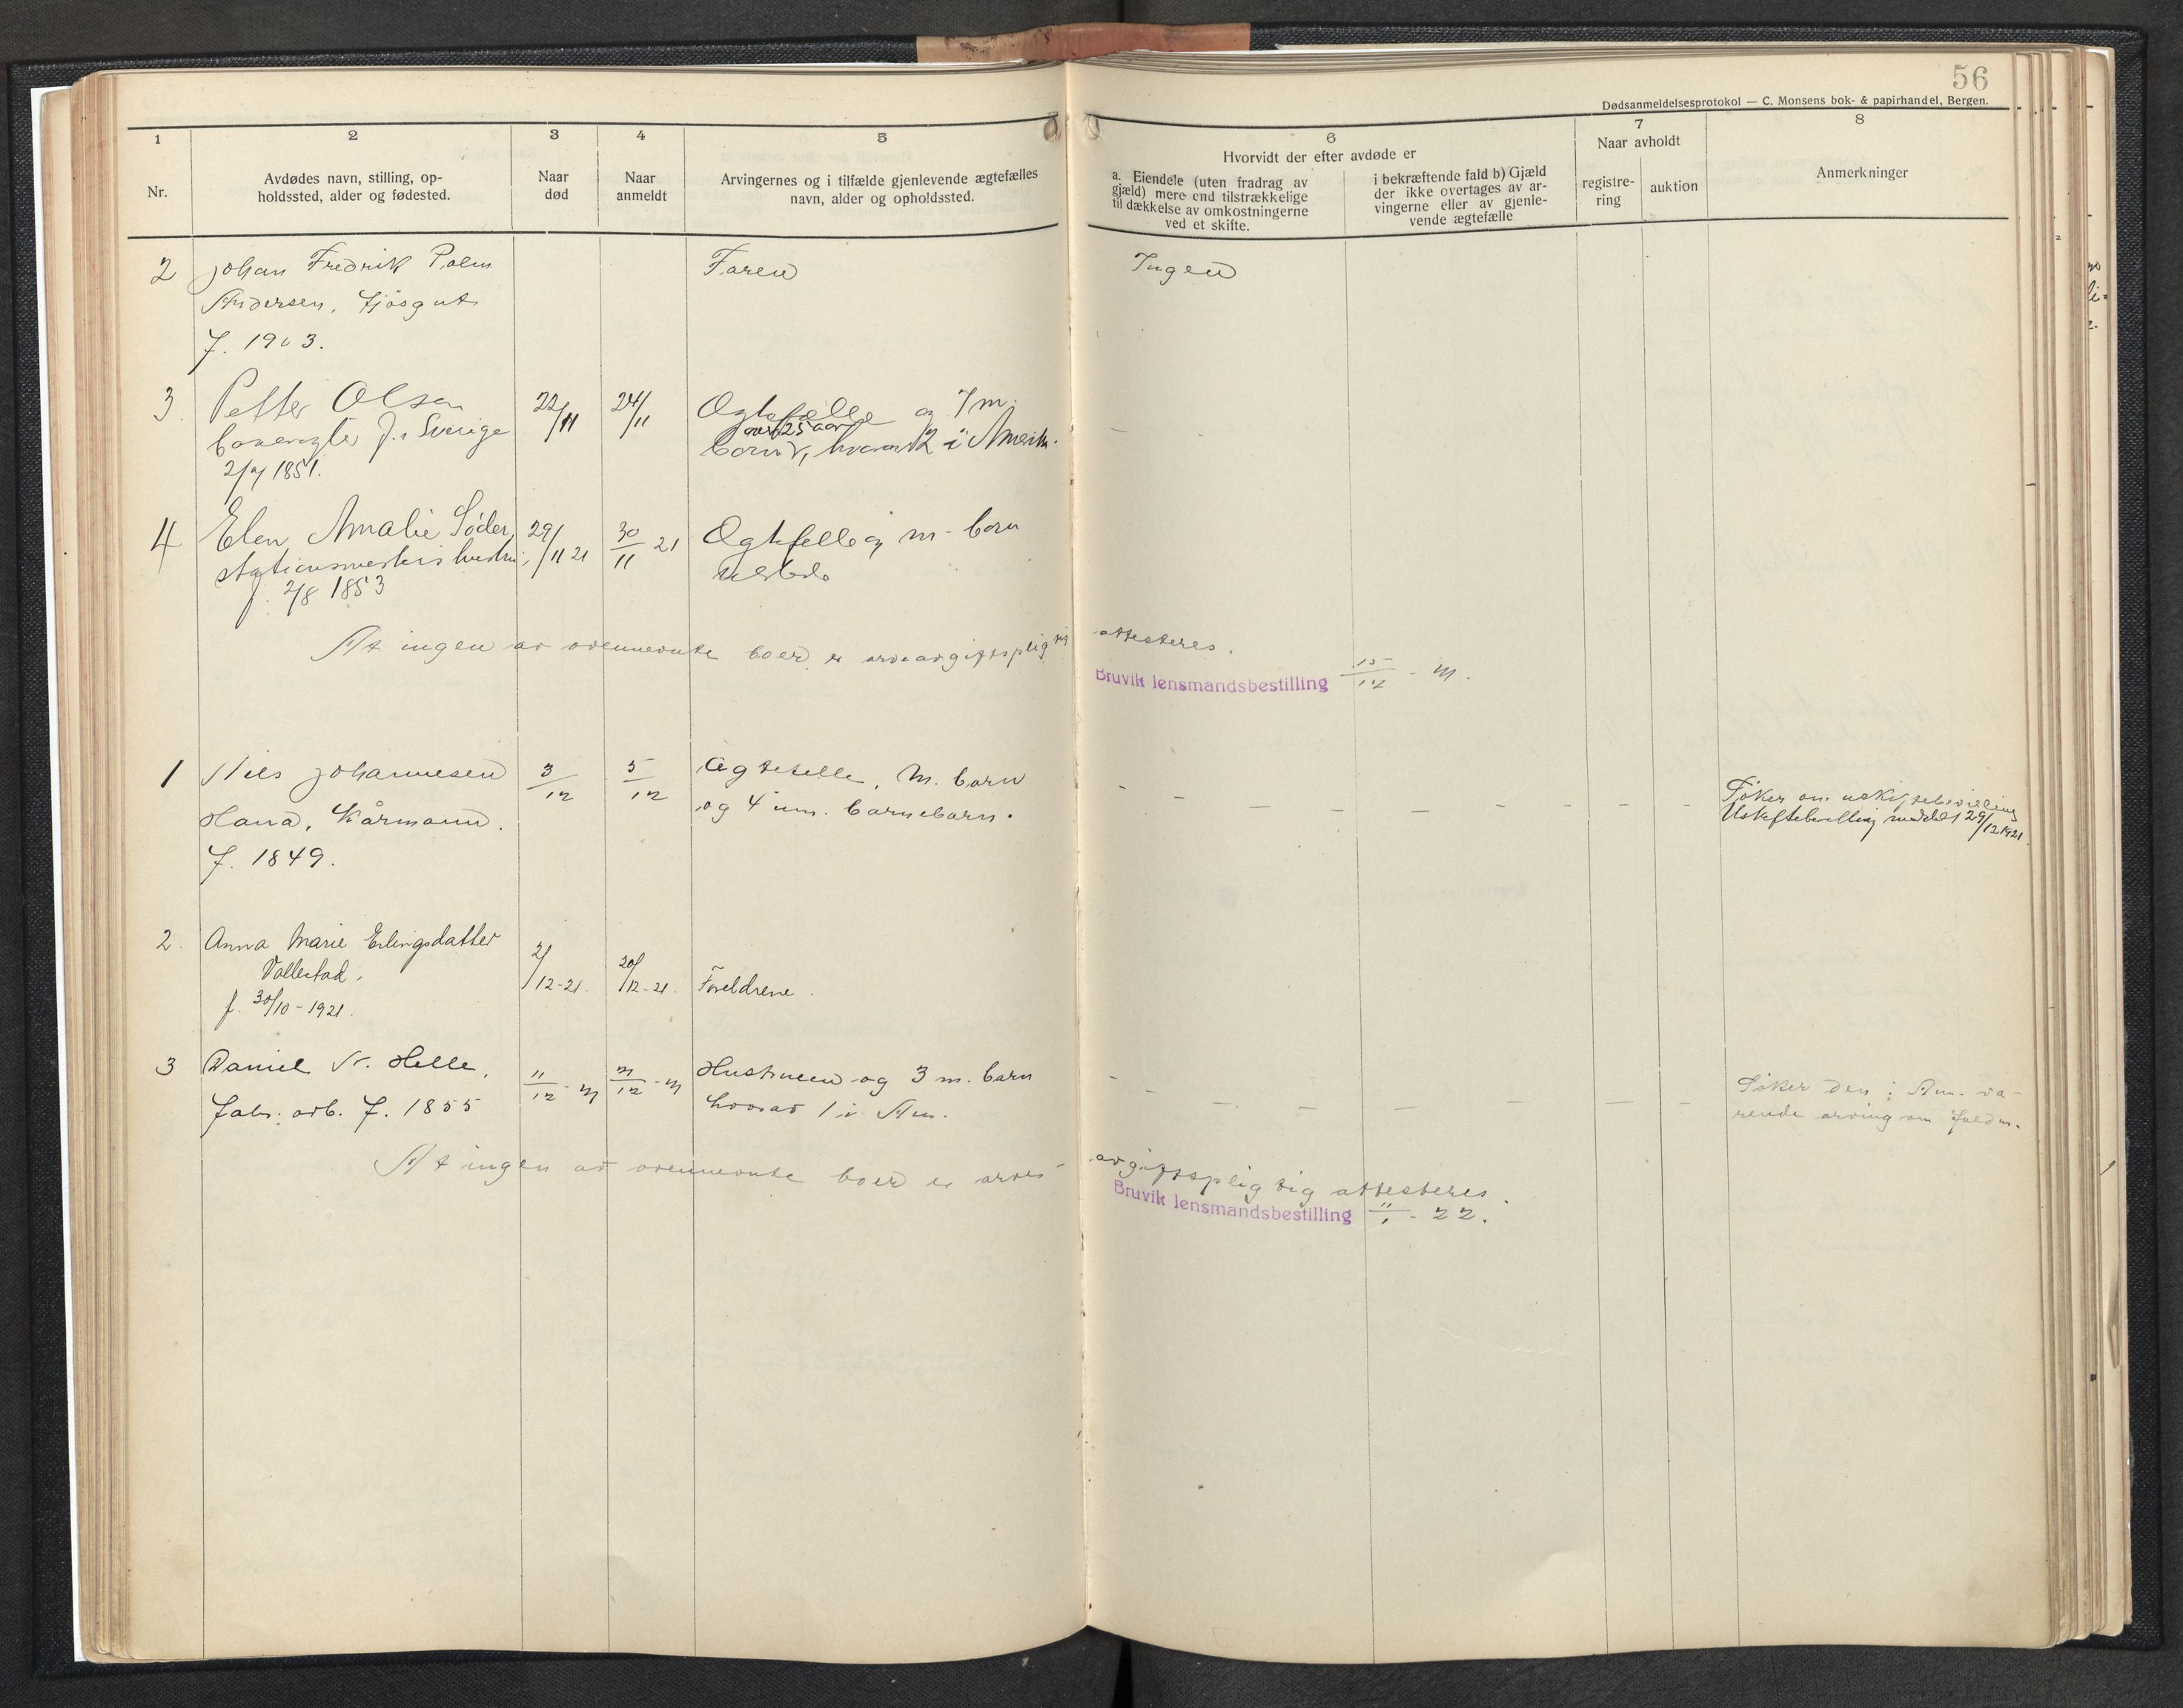 56
Dødsanmeldelsesprotokol — C. Monsens bok- & papirhandel, Bergen.
1 2 3 4 5 6 7 8
Nr.
Avdødes navn, stilling, op-
holdssted, alder og fødested.
Naar
død
Naar
anmeldt
Arvingernes og i tilfælde gjenlevende ægtefælles
navn, alder og opholdssted.
Hvorvidt der efter avdøde er
a. Eiendele (uten fradrag av
gjæld) mere end tilstrækkelige
til dækkelse av omkostningerne
ved et skifte.
i bekræftende fald b) Gjæld
der ikke overtages av ar-
vingerne eller av gjenle-
vende ægtefælle
Naar avholdt
registre-
ring
auktion
Anmerkninger
2 Johan Fredrik Palm Faren Ingen
Andersen, fjøsgut
f. 1903.
3. Petter Olsen 22/11 24/11 Ægtefælle og 7 m.
over 25 aar
banevogter f. i Sverige born, hvorav 2 i Amerika. —
1851.
4 Elen Amalie Söder, 29/11 21 30/11 21 Ægtefelle og m. born
stationsmesters hustru,
f. 2/8 1853
At ingen av ovennevnte boer er arveavgiftspligtig attesteres.
Bruvik lensmandsbestilling 15/12 - 21.
1 Nils Johannesen 3/12 5/12 Ægtefelle, m. barn - - — — — — - - - Søker om uskiftebevilling
Hana, kårmann. og 4 um. barnebarn. Uskiftebevilling meddelt 29/12 1921.
f. 1849.
2. Anna Marie Erlingsdatter
Vallestad. 2/12-21. 20/12-21. Foreldrene.
f. 30/10-1921.
3 Daniel N. Helle, 11/12 - 21 21/12 - 21 Hustruen og 3 m. barn - - — — — — — — — Søker den i Am. va-
fabr. arb. f. 1855 hvorav 1 i Am. rende arving om fuldm.
At ingen av ovennevnte boer er arve- avgiftspligtig attesteres.
Bruvik lensmandsbestilling 11/1 - 22.